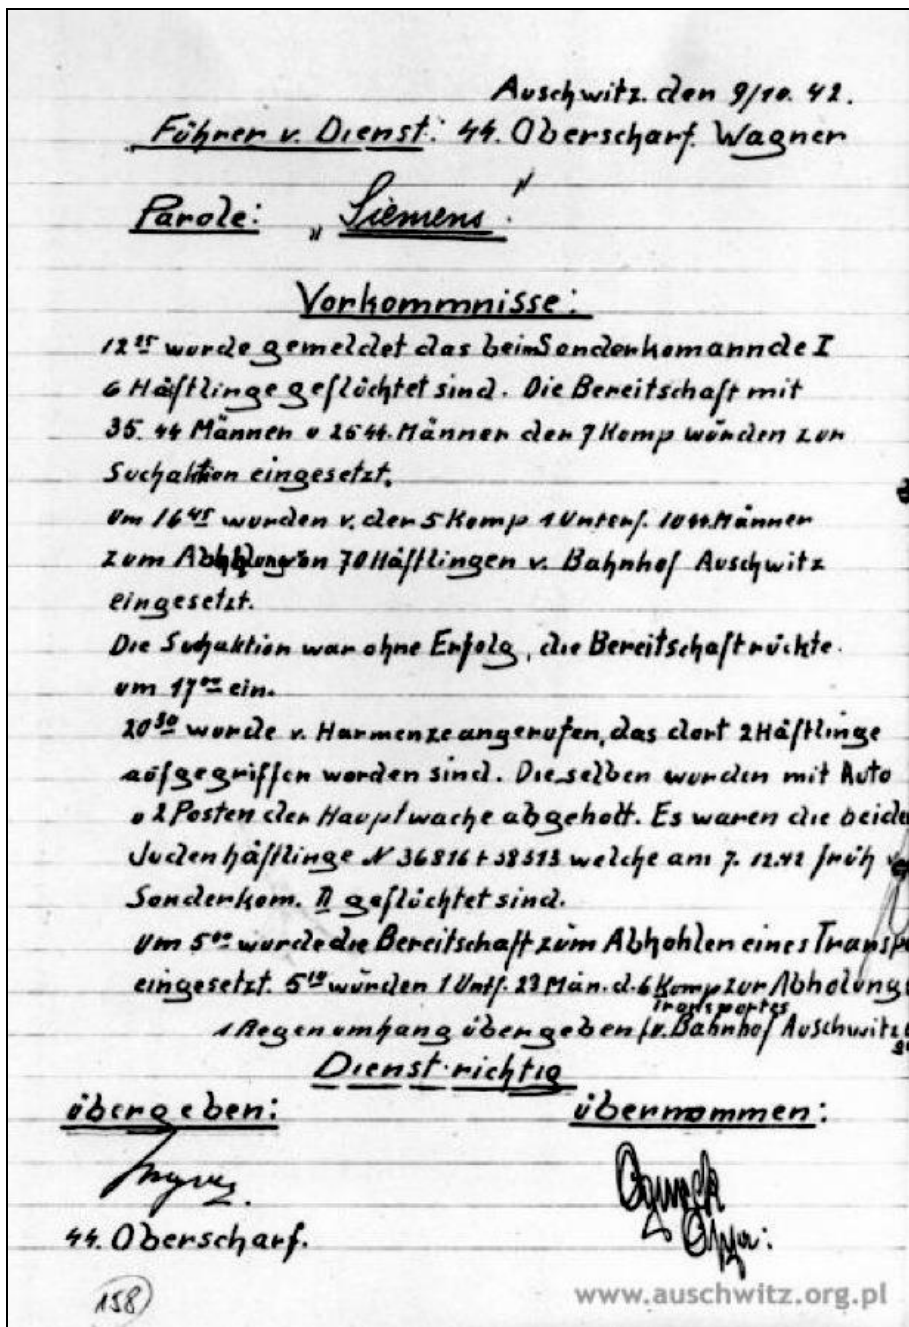 Auschwitz. den 9/10. 42.
Führer v. Dienst: 44. Oberscharf. Wagner
Parole: „Siemens."
Vorkommnisse:
12²⁵ wurde gemeldet das beim Sonderkomannde I
6 Häftlinge geflüchtet sind. Die Bereitschaft mit
35. 44 Männer u 25 44. Männer der 7 Komp würden zur
Suchaktion eingesetzt.
Um 16⁴⁵ wurden v. der 5 Komp 1 Unterf. 10 44. Männer
zum 70 Häftlingen v. Bahnhof Auschwitz
eingesetzt.
Die Suchaktion war ohne Erfolg, die Bereitschaft rückte.
um 17⁰⁰ ein.
20³⁰ wurde v. Harmenze angerufen, das dort 2 Häftlinge
aufgegriffen worden sind. Die selben wurden mit Auto
u 2 Posten der Hauptwache abgeholt. Es waren die beide
Judenhäftlinge N 36816 + 38313 welche am 7. 12.42 früh
Sonderkom. II geflüchtet sind.
Um 5⁰⁰ wurde die Bereitschaft zum Abhohlen eines Transp
eingesetzt. 5¹⁰ würden 1 Untf. 23 Män. d. 6 Komp zur Abholung
Transportes
1 Regenumhang übergeben v. Bahnhof Auschwitz
Dienst richtig
übergeben: übernommen:
44. Oberscharf.
158
www.auschwitz.org.pl